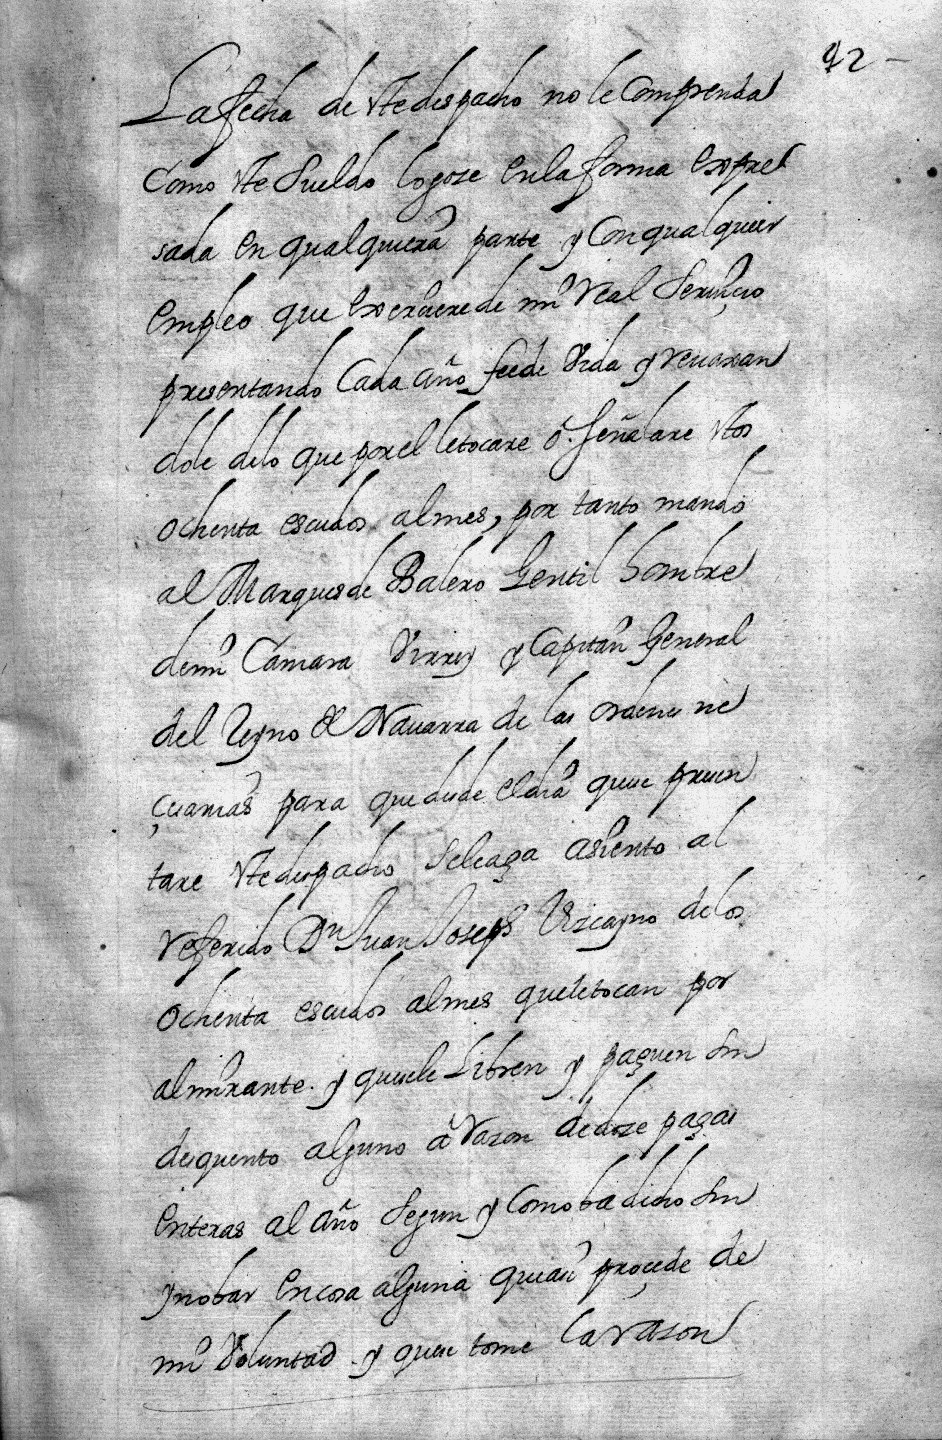 42
La fecha de Vte despacho no le Comprenda
Como Vte Sueldo logoze en la forma expre
sada en qualquiera parte y Con qualquier
Empleo que exerciere de mi Real Servicio
presentando Cada año feede Vida y reuaxan
dole delo que por el letocare ó señalare Vtos
Ochenta escudos almes, por tanto mando
al Marques de Balero Gentil hombre
demi Camara Virrey y Capitan General
del Reyno de Nauarra de las ordenes ne
çesarias para que desde el dia que se presen
tare Vte despacho Seleaga asiento al
Referido Dn Juan Joseph Vizcayno de los
Ochenta escudos almes queletocan por
almirante. y quesele Libren y paguen sin
desquento alguno á Razon de doze pagas
Enteras al año Segun y Como ba dicho sin
ynobar En cosa alguna que asi proçede de
mi Voluntad y que se tome la razon